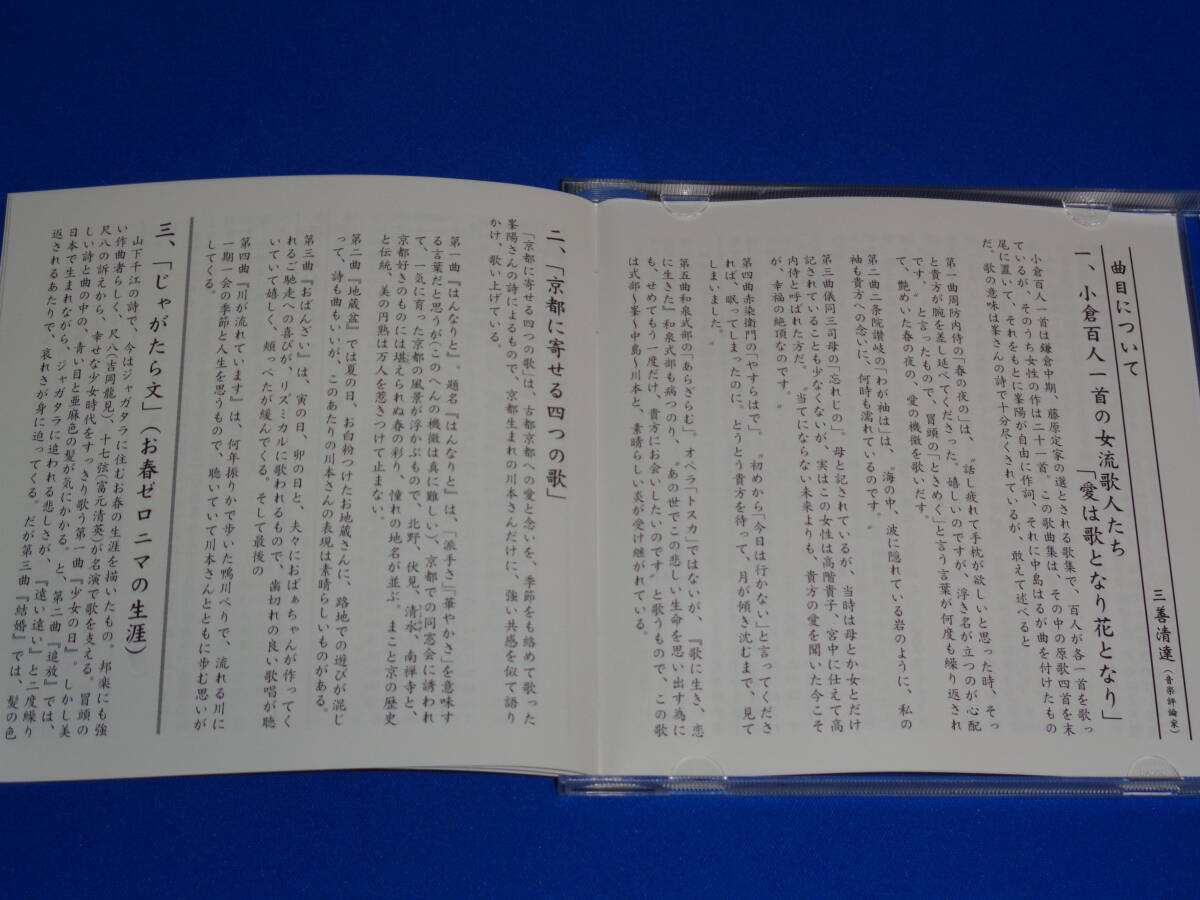 曲目について
三善清達（音楽評論家）
一、小倉百人一首の女流歌人たち
「愛は歌となり花となり」
小倉百人一首は鎌倉中期、藤原定家の選とされる歌集で、百人が各一首を歌っ
ているが、そのうち女性の作は二十一首。この歌曲集は、その中の原歌四首を末
尾に置いて、それをもとに峯陽が自由に作詞、それに中島はるが曲を付けたもの
だ。歌の意味は峯さんの詩で十分尽くされているが、敢えて述べると
第一曲周防内侍の「春の夜の」は、〝話し疲れて手枕が欲しいと思った時、そっ
と貴方が腕を差し延べてくださった。嬉しいのですが、浮き名が立つのが心配
です。〟と言ったもので、冒頭の「ときめく」と言う言葉が何度も繰り返され
て、艶めいた春の夜の、愛の機微を歌いだす。
第二曲二条院讃岐の「わが袖は」は、〝海の中、波に隠れている岩のように、私の
袖も貴方への念いに、何時も濡れているのです。〟
第三曲儀同三司母の「忘れじの」。母と記されているが、当時は母とか女とだけ
記されていることも少なくないが、実はこの女性は高階貴子、宮中に仕えて高
内侍と呼ばれた方だ。〝当てにならない未来よりも、貴方の愛を聞いた今こそ
が、幸福の絶頂なのです。〟
第四曲赤染衛門の「やすらはで」。〝初めから「今日は行かない」と言ってくださ
れば、眠ってしまったのに。とうとう貴方を待って、月が傾き沈むまで、見て
しまいました。〟
第五曲和泉式部の「あらざらむ」。オペラ「トスカ」ではないが、『歌に生き、恋
に生きた』和泉式部も病つのり、〝あの世でこの悲しい生命を思い出す為に
も、せめてもう一度だけ、貴方にお会いしたいのです〟と歌うもので、この歌
は式部〜峯〜中島〜川本と、素晴らしい炎が受け継がれている。
二、「京都に寄せる四つの歌」
「京都に寄せる四つの歌」は、古都京都への愛と念いを、季節をも絡めて歌った
峯陽さんの詩によるもので、京都生まれの川本さんだけに、強い共感を似て語り
かけ、歌い上げている。
第一曲『はんなりと』。題名『はんなりと』は、「派手さ」「華やかさ」を意味す
る言葉だと思うが（このへんの機微は真に難しい）、京都での同窓会に誘われ
て、一気に育った京都の風景が浮かぶもので、北野、伏見、清水、南禅寺と、
京都好きのものには堪えられぬ春の彩り、憧れの地名が並ぶ。まこと京の歴史
と伝統、美の円熟は万人を惹きつけて止まない。
第二曲『地蔵盆』では夏の日、お白粉つけたお地蔵さんに、路地での遊びが混じ
って、詩も曲もいいが、このあたりの川本さんの表現は素晴らしいものがある。
第三曲『おばんざい』は、寅の日、卯の日と、夫々におばぁちゃんが作ってく
れるご馳走への喜びが、リズミカルに歌われるもので、歯切れの良い歌唱が聴
いていて嬉しく、頬っぺたが緩んでくる。そして最後の
第四曲『川が流れています』は、何年振りかで歩いた鴨川べりで、流れる川に
一期一会の季節と人生を思うもので、聴いていて川本さんとともに歩む思いが
してくる。
三、「じゃがたら文」（お春ゼロニマの生涯）
山下千江の詩で、今はジャガタラに住むお春の生涯を描いたもの。邦楽にも強
い作曲者らしく、尺八（吉岡龍見）、十七弦（富元清英）が名演で歌を支える。冒頭の
尺八の訴えから、幸せな少女時代をすっきり歌う第一曲『少女の日』。しかし美
しい詩と曲の中の、青い目と亜麻色の髪が気にかかる。と、第二曲『追放』では、
日本で生まれながら、ジャガタラに追われる悲しさが、『遠い遠い』と二度繰り
返されるあたりで、哀れさが身に迫ってくる。だが第三曲『結婚』では、髪の色